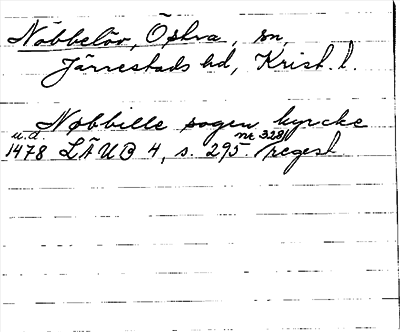 Nöbbelöv, Östra, sn,
Järrestads hd, Krist. l.
Nøbbille sogen kyrcke
u.å.
1478 LÄUB 4, s. 295. nr 328 /regest